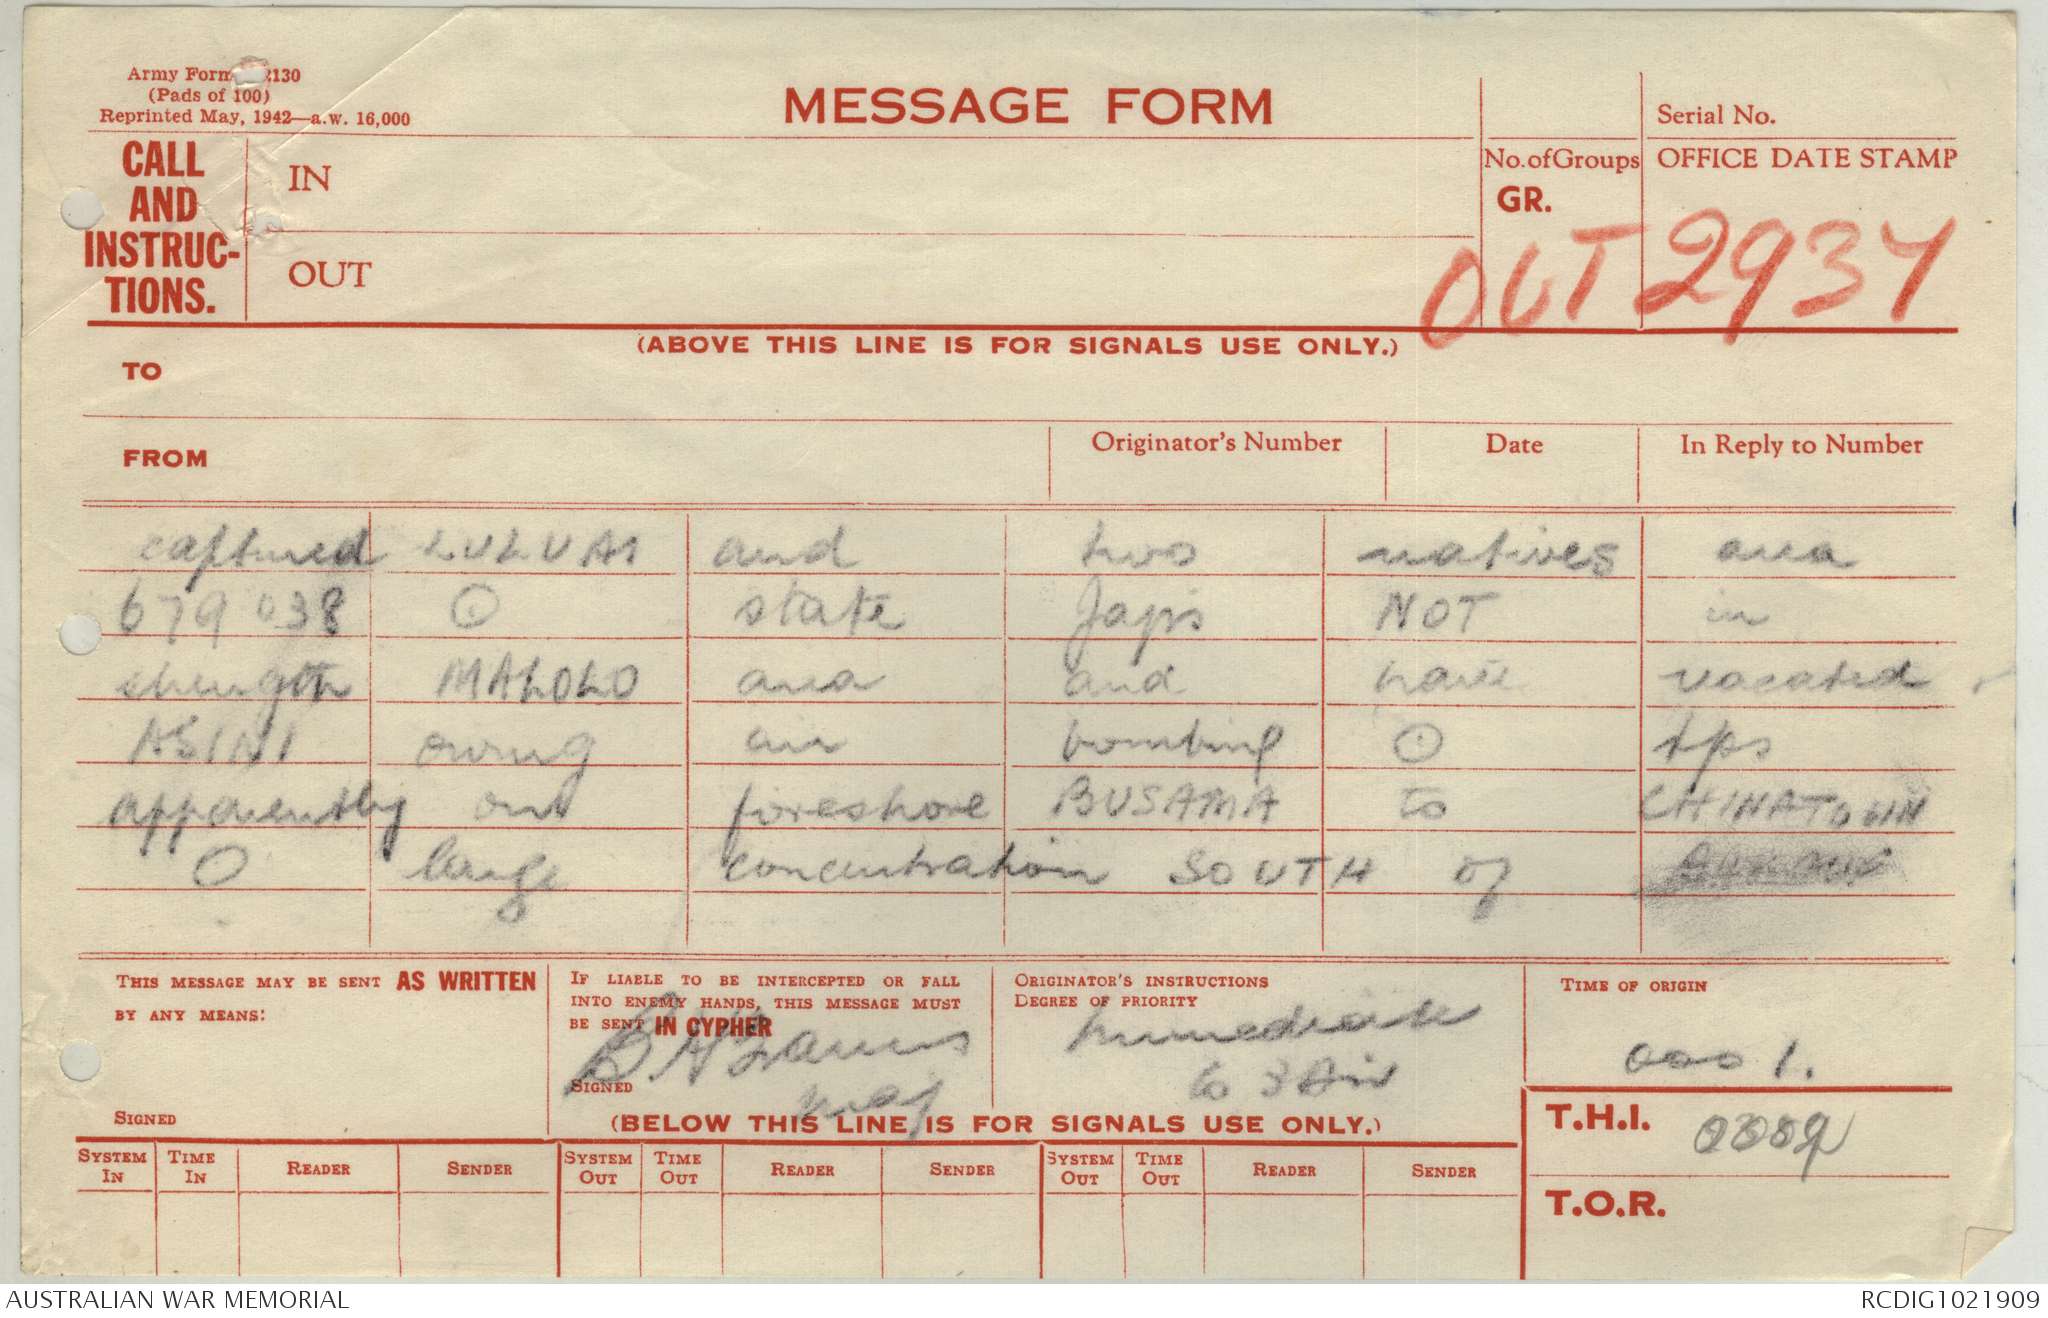 Army Form 2130
(Pads of 100)
Reprinted May, 1942—a.w. 16,000
MESSAGE FORM
Serial No.
CALL AND INSTRUC-TIONS.
IN
OUT
No. of Groups
GR.
OFFICE DATE STAMP
OUT 2937
(ABOVE THIS LINE IS FOR SIGNALS USE ONLY.)
TO
FROM
Originator's Number
Date
In Reply to Number
captured LULUAI and two natives area
679038 O state Japs NOT in
strength MALOLO area and have vacated
ASINI owing air bombing O tps
apparently on foreshore BUSAMA to CHINATOWN
O large concentration SOUTH of
THIS MESSAGE MAY BE SENT AS WRITTEN
BY ANY MEANS:
SIGNED
IF LIABLE TO BE INTERCEPTED OR FALL
INTO ENEMY HANDS, THIS MESSAGE MUST
BE SENT IN CYPHER
SIGNED
Maj
ORIGINATOR'S INSTRUCTIONS
DEGREE OF PRIORITY
Immediate
to 3 Div
TIME OF ORIGIN
0001.
(BELOW THIS LINE IS FOR SIGNALS USE ONLY.)
T.H.I.
T.O.R.
SYSTEM IN
TIME IN
READER
SENDER
SYSTEM OUT
TIME OUT
READER
SENDER
SYSTEM OUT
TIME OUT
READER
SENDER
AUSTRALIAN WAR MEMORIAL
RCDIG1021909